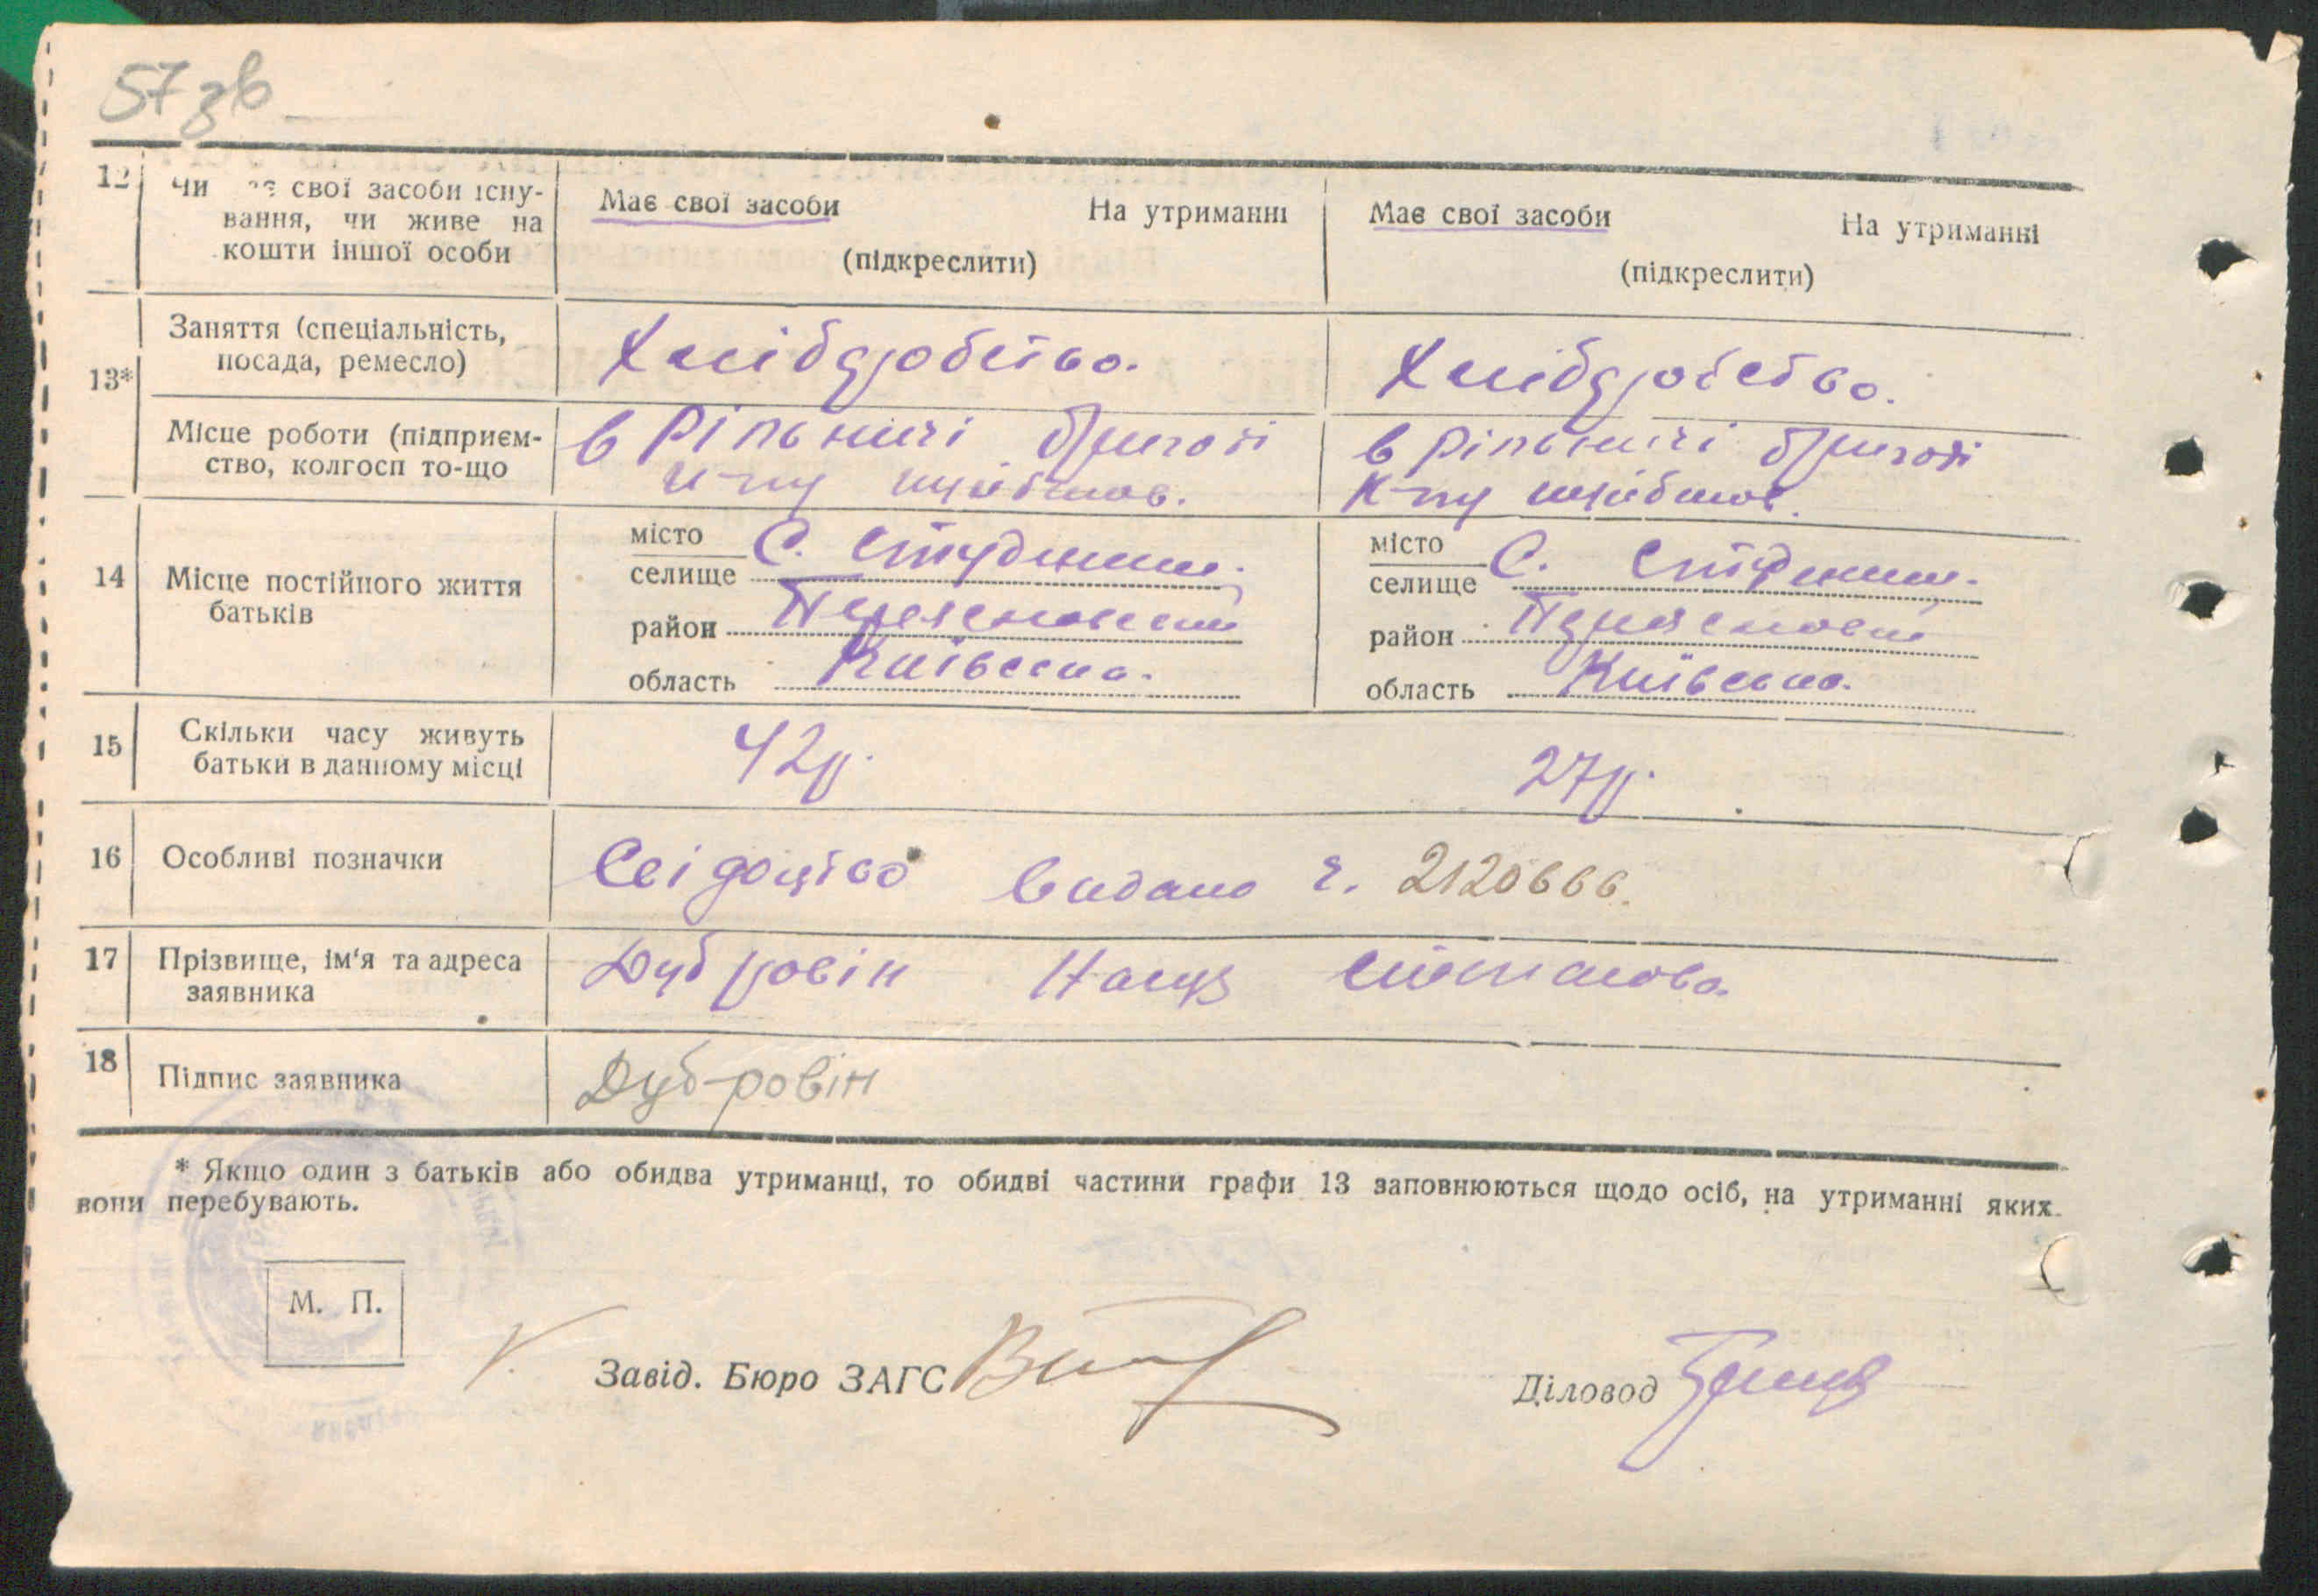 57 зв
12 Чи має свої засоби існу- Має свої засоби На утриманні Має свої засоби На утриманні
вання, чи живе на
кошти іншої особи (підкреслити) (підкреслити)
13* Заняття (спеціальність, Хліборобство. Хліборобство.
посада, ремесло)
Місце роботи (підприєм- в рільничі бригаді в рільничі бригаді
ство, колгосп то-що к-пу к-пу
14 Місце постійного життя
батьків
місто С. Студеники. місто С. Студеники.
селище селище
район Переяславський район Переяславськ
область Київська. область Київська.
15 Скільки часу живуть 42р. 27р.
батьки в данному місці
16 Особливі позначки Свідоцтво видано ч. 2120666.
17 Прізвище, ім'я та адреса Дубровін
заявника
18 Підпис заявника Дубровін
* Якщо один з батьків або обидва утриманці, то обидві частини графи 13 заповнюються щодо осіб, на утриманні яких
вони перебувають.
М. П.
Завід. Бюро ЗАГС Діловод